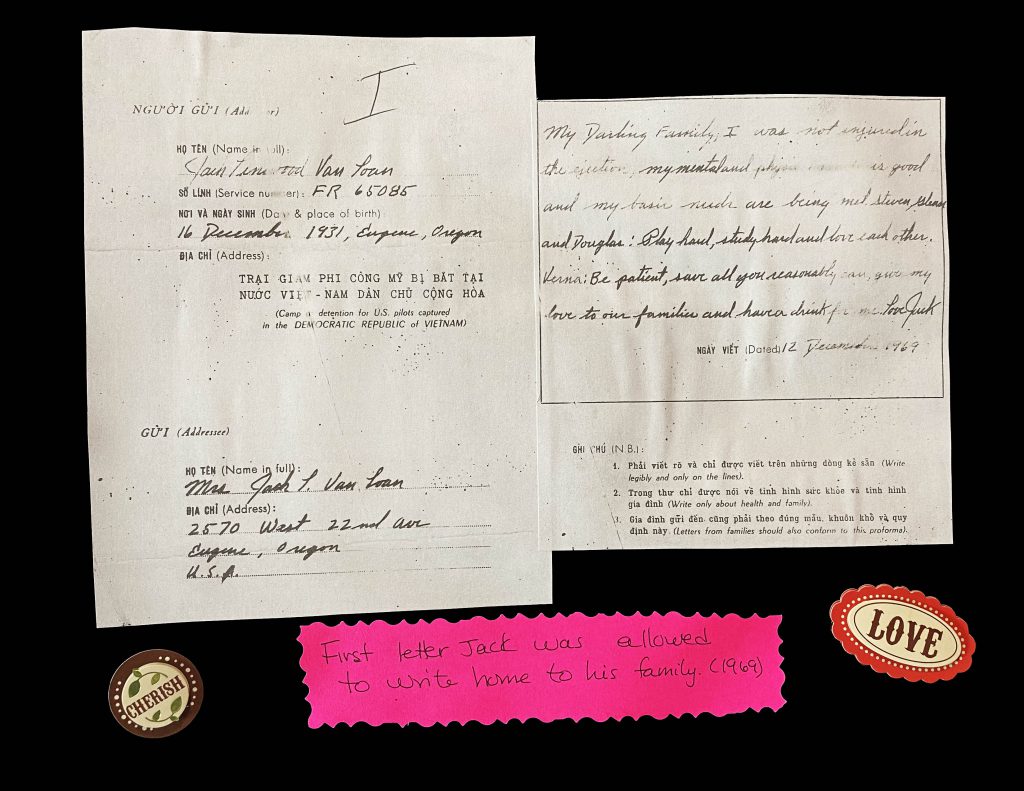 I
NGƯỜI GỬI (Add er)
HỌ TÊN (Name in full):
Van Loan
SỐ LÍNH (Service number): FR 65085
NƠI VÀ NGÀY SINH (Day & place of birth)
16 December 1931, Eugene, Oregon
ĐỊA CHỈ (Address):
TRẠI GIAM PHI CÔNG MỸ BỊ BẮT TẠI
NƯỚC VIỆT-NAM DÂN CHỦ CỘNG HÒA
(Camp detention for U.S. pilots captured
in the DEMOCRATIC REPUBLIC of VIETNAM)
GỬI (Addressee)
HỌ TÊN (Name in full):
Mrs Jack L. Van Loan
ĐỊA CHỈ (Address):
2570 West 22nd ave
Eugene, Oregon
U.S.A.
My Darling Family; I was not injured in
the ejection, my mental and is good
and my basic needs are being met. Steven,
and Douglas: Play hard, study hard and love each other.
Verna: Be patient, save all you reasonably can, give my
love to our families and have a drink for me. Love Jack
NGÀY VIẾT (Dated) 12 December 1969
GHI CHÚ (N.B.):
1. Phải viết rõ và chỉ được viết trên những dòng kẻ sẵn (Write
legibly and only on the lines).
2. Trong thư chỉ được nói về tình hình sức khỏe và tình hình
gia đình (Write only about health and family).
3. Gia đình gửi đến cũng phải theo đúng mẫu, khuôn khổ và quy
định này. (Letters from families should also conform to this proforma).
First letter Jack was allowed
to write home to his family. (1969)
CHERISH
LOVE